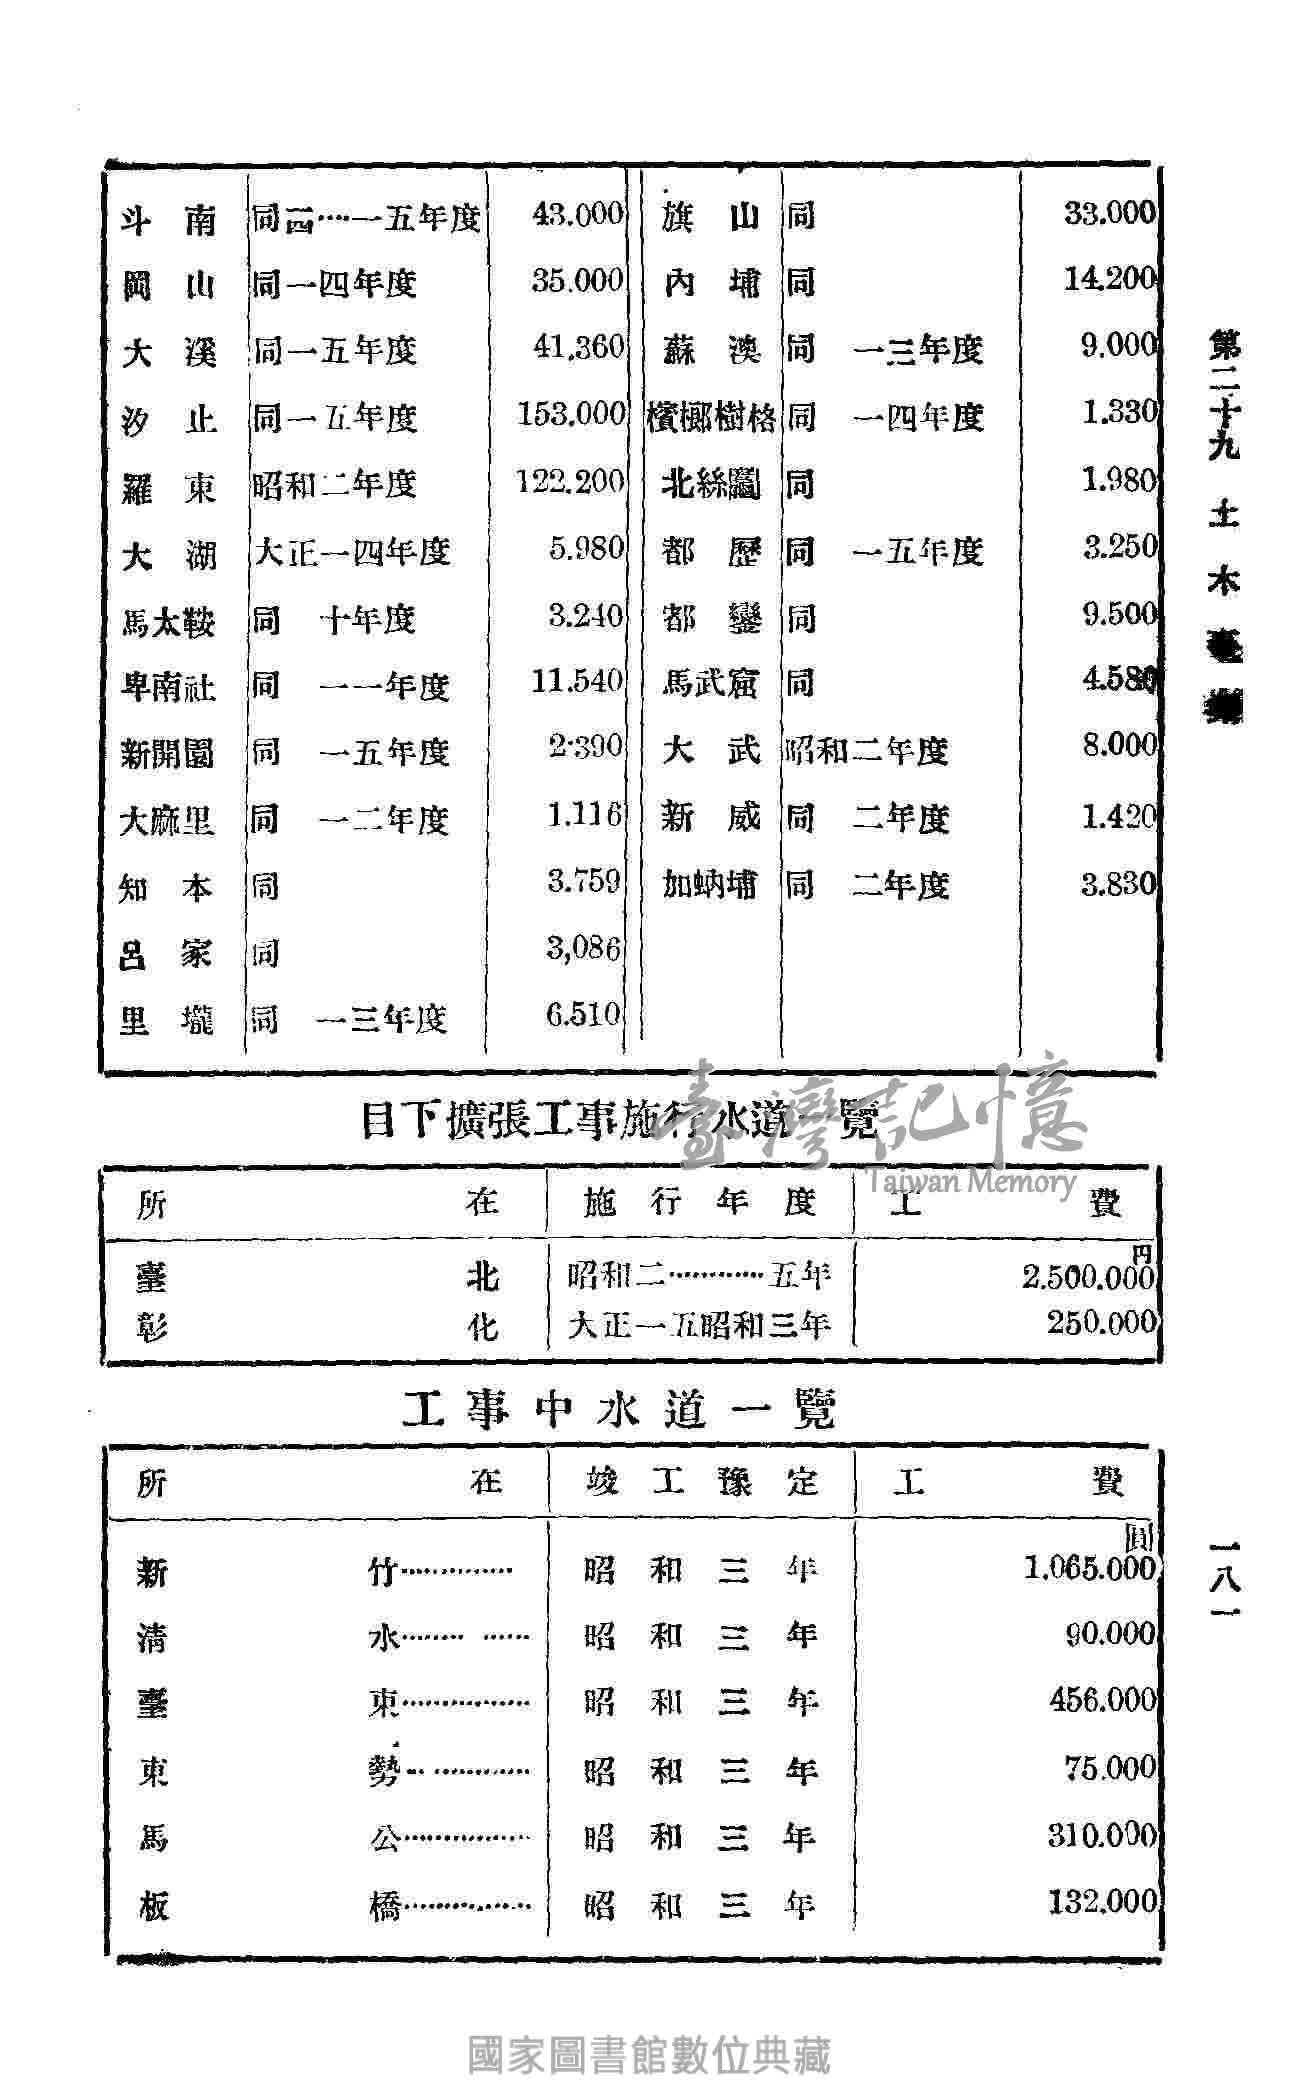 斗南 同一四…一五年度 43.000 旗山 同 33.000
岡山 同一四年度 35.000 內埔 同 14.200
大溪 同一五年度 41.360 蘇澳 同 一三年度 9.000
汐止 同一五年度 153.000 檳榔樹格 同 一四年度 1.330
羅東 昭和二年度 122.200 北絲鬮 同 1.980
大湖 大正一四年度 5.980 都歷 同 一五年度 3.250
馬太鞍 同 十年度 3.240 都鑾 同 9.500
卑南社 同 一一年度 11.540 馬武窟 同 4.580
新開園 同 一五年度 2.390 大武 昭和二年度 8.000
大麻里 同 一二年度 1.116 新威 同 二年度 1.420
知本 同 3.759 加蚋埔 同 二年度 3.830
呂家 同 3,086
里壠 同 一三年度 6.510
目下擴張工事施行水道一覽
所在 施行年度 工費
臺北 昭和二…………五年 円 2.500.000
彰化 大正一五昭和三年 250.000
工事中水道一覽
所在 竣工豫定 工費
新竹………… 昭和三年 圓 1.065.000
清水………… 昭和三年 90.000
臺東………… 昭和三年 456.000
東勢………… 昭和三年 75.000
馬公………… 昭和三年 310.000
板橋………… 昭和三年 132.000
第二十九 土木
一八一
臺灣記憶
Taiwan Memory
國家圖書館數位典藏